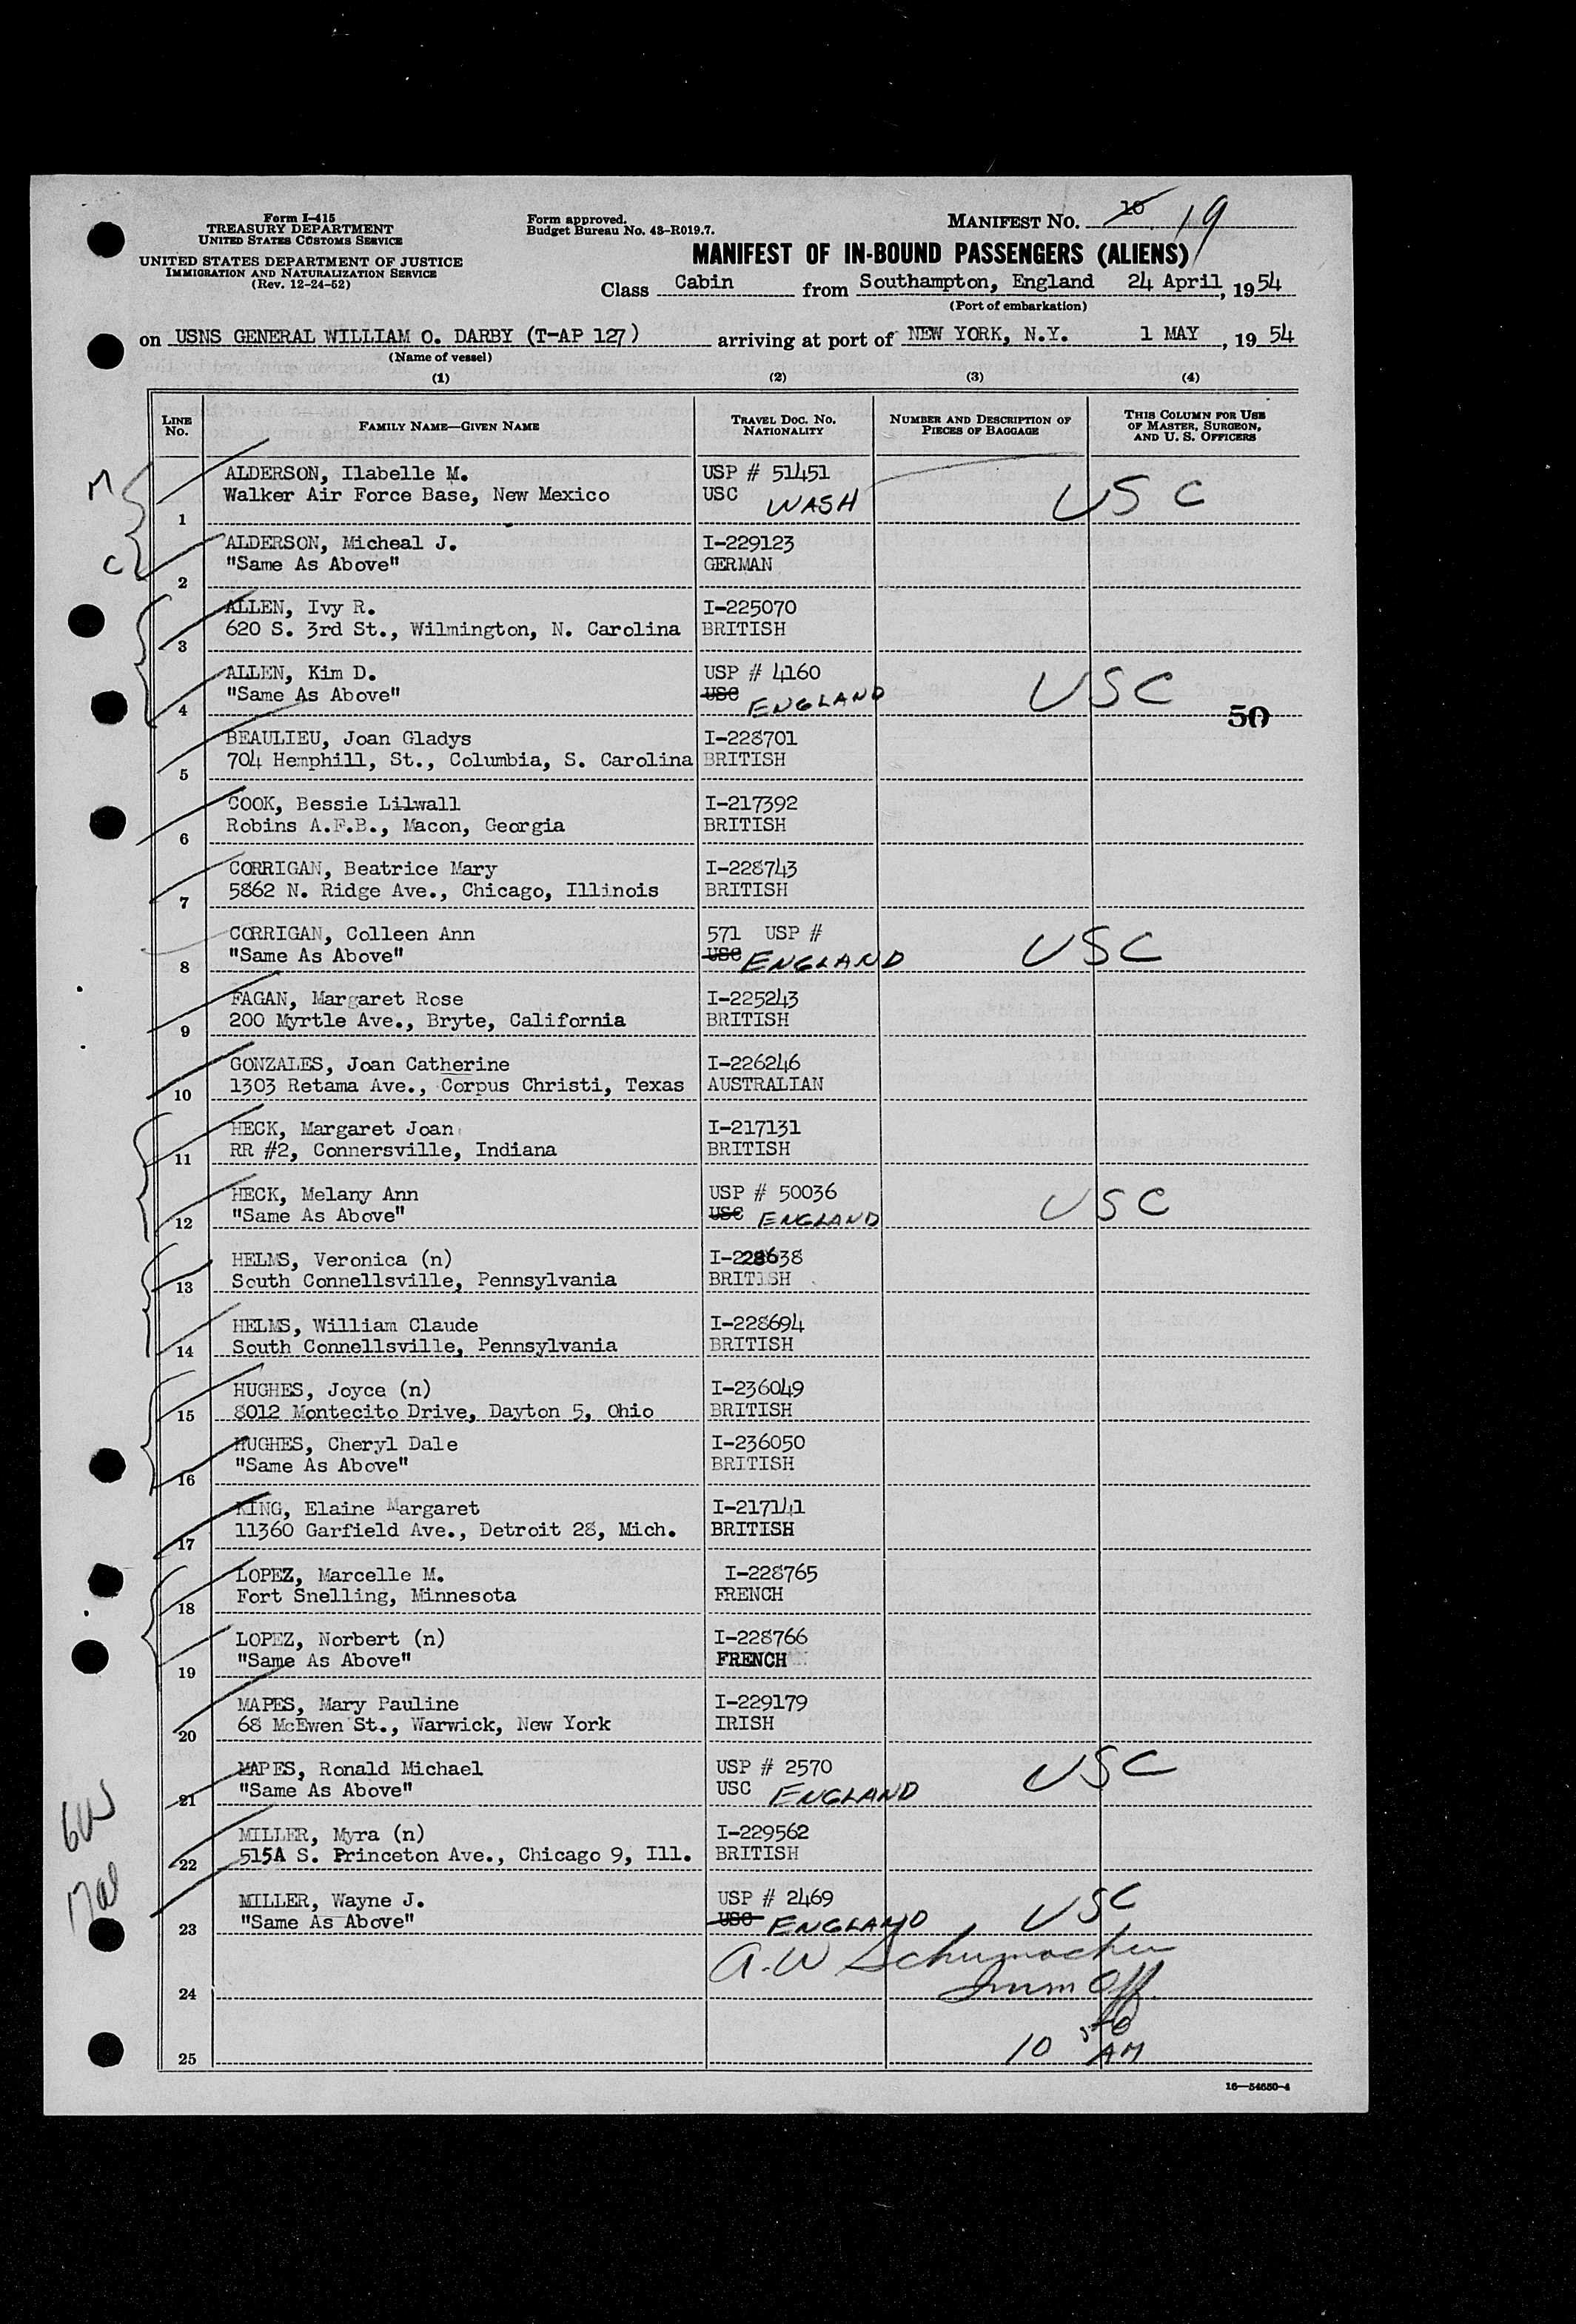 Form I-415
TREASURY DEPARTMENT
UNITED STATES CUSTOMS SERVICE
UNITED STATES DEPARTMENT OF JUSTICE
IMMIGRATION AND NATURALIZATION SERVICE
(Rev. 12-24-52)
Form approved.
Budget Bureau No. 43-R019.7.
MANIFEST NO. 10 19
MANIFEST OF IN-BOUND PASSENGERS (ALIENS)
Class Cabin from Southampton, England 24 April, 1954
(Port of embarkation)
on USNS GENERAL WILLIAM O. DARBY (T-AP 127) arriving at port of NEW YORK, N.Y. 1 MAY, 1954
(Name of vessel)
(1) (2) (3) (4)
LINE NO. FAMILY NAME—GIVEN NAME TRAVEL DOC. NO. NATIONALITY NUMBER AND DESCRIPTION OF PIECES OF BAGGAGE THIS COLUMN FOR USE OF MASTER, SURGEON, AND U. S. OFFICERS
M
ALDERSON, Ilabelle M. USP # 51451
Walker Air Force Base, New Mexico USC WASH USC
1
C
ALDERSON, Micheal J. I-229123
"Same As Above" GERMAN
2
ALLEN, Ivy R. I-225070
620 S. 3rd St., Wilmington, N. Carolina BRITISH
3
ALLEN, Kim D. USP # 4160
"Same As Above" USC ENGLAND USC
4 50
BEAULIEU, Joan Gladys I-228701
704 Hemphill, St., Columbia, S. Carolina BRITISH
5
COOK, Bessie Lilwall I-217392
Robins A.F.B., Macon, Georgia BRITISH
6
CORRIGAN, Beatrice Mary I-228743
5862 N. Ridge Ave., Chicago, Illinois BRITISH
7
CORRIGAN, Colleen Ann 571 USP #
"Same As Above" USC ENGLAND USC
8
FAGAN, Margaret Rose I-225243
200 Myrtle Ave., Bryte, California BRITISH
9
GONZALES, Joan Catherine I-226246
1303 Retama Ave., Corpus Christi, Texas AUSTRALIAN
10
HECK, Margaret Joan I-217131
RR #2, Connersville, Indiana BRITISH
11
HECK, Melany Ann USP # 50036
"Same As Above" USC ENGLAND USC
12
HELMS, Veronica (n) I-228638
South Connellsville, Pennsylvania BRITISH
13
HELMS, William Claude I-228694
South Connellsville, Pennsylvania BRITISH
14
HUGHES, Joyce (n) I-236049
8012 Montecito Drive, Dayton 5, Ohio BRITISH
15
HUGHES, Cheryl Dale I-236050
"Same As Above" BRITISH
16
KING, Elaine Margaret I-217141
11360 Garfield Ave., Detroit 28, Mich. BRITISH
17
LOPEZ, Marcelle M. I-228765
Fort Snelling, Minnesota FRENCH
18
LOPEZ, Norbert (n) I-228766
"Same As Above" FRENCH
19
MAPES, Mary Pauline I-229179
68 McEwen St., Warwick, New York IRISH
20
MAPES, Ronald Michael USP # 2570
"Same As Above" USC ENGLAND USC
21
MILLER, Myra (n) I-229562
515A S. Princeton Ave., Chicago 9, Ill. BRITISH
22
MILLER, Wayne J. USP # 2469
"Same As Above" USC ENGLAND USC
23
A.W Schumacher
Imm Off
24
10 AM
25
16—54650-4